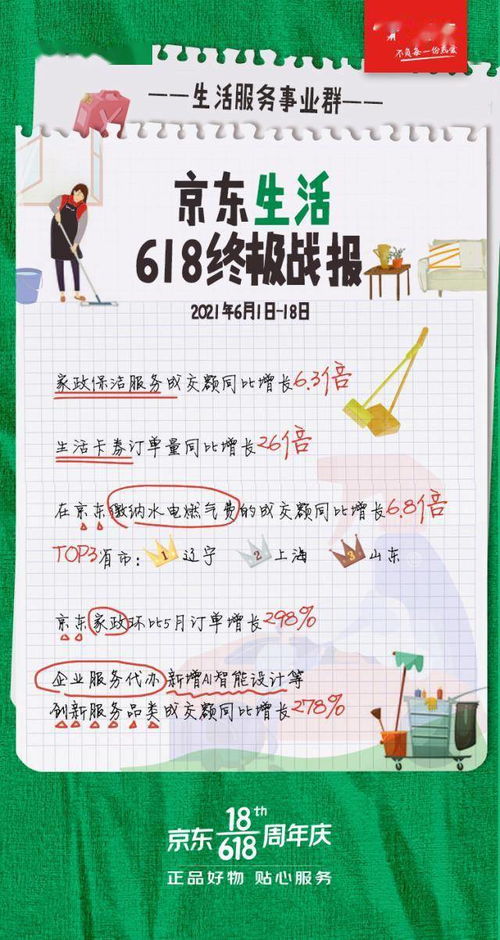 不负每一份热爱
——生活服务事业群——
京东生活
618终极战报
2021年6月1日-18日
家政保洁服务成交额同比增长6.3倍
生活卡券订单量同比增长26倍
在京东缴纳水电燃气费的成交额同比增长6.8倍
TOP3省市: 1 辽宁 2 上海 3 山东
京东家政环比5月订单增长298%
企业服务代办新增AI智能设计等
创新服务品类成交额同比增长278%
京东 18th/618 周年庆
正品好物 贴心服务